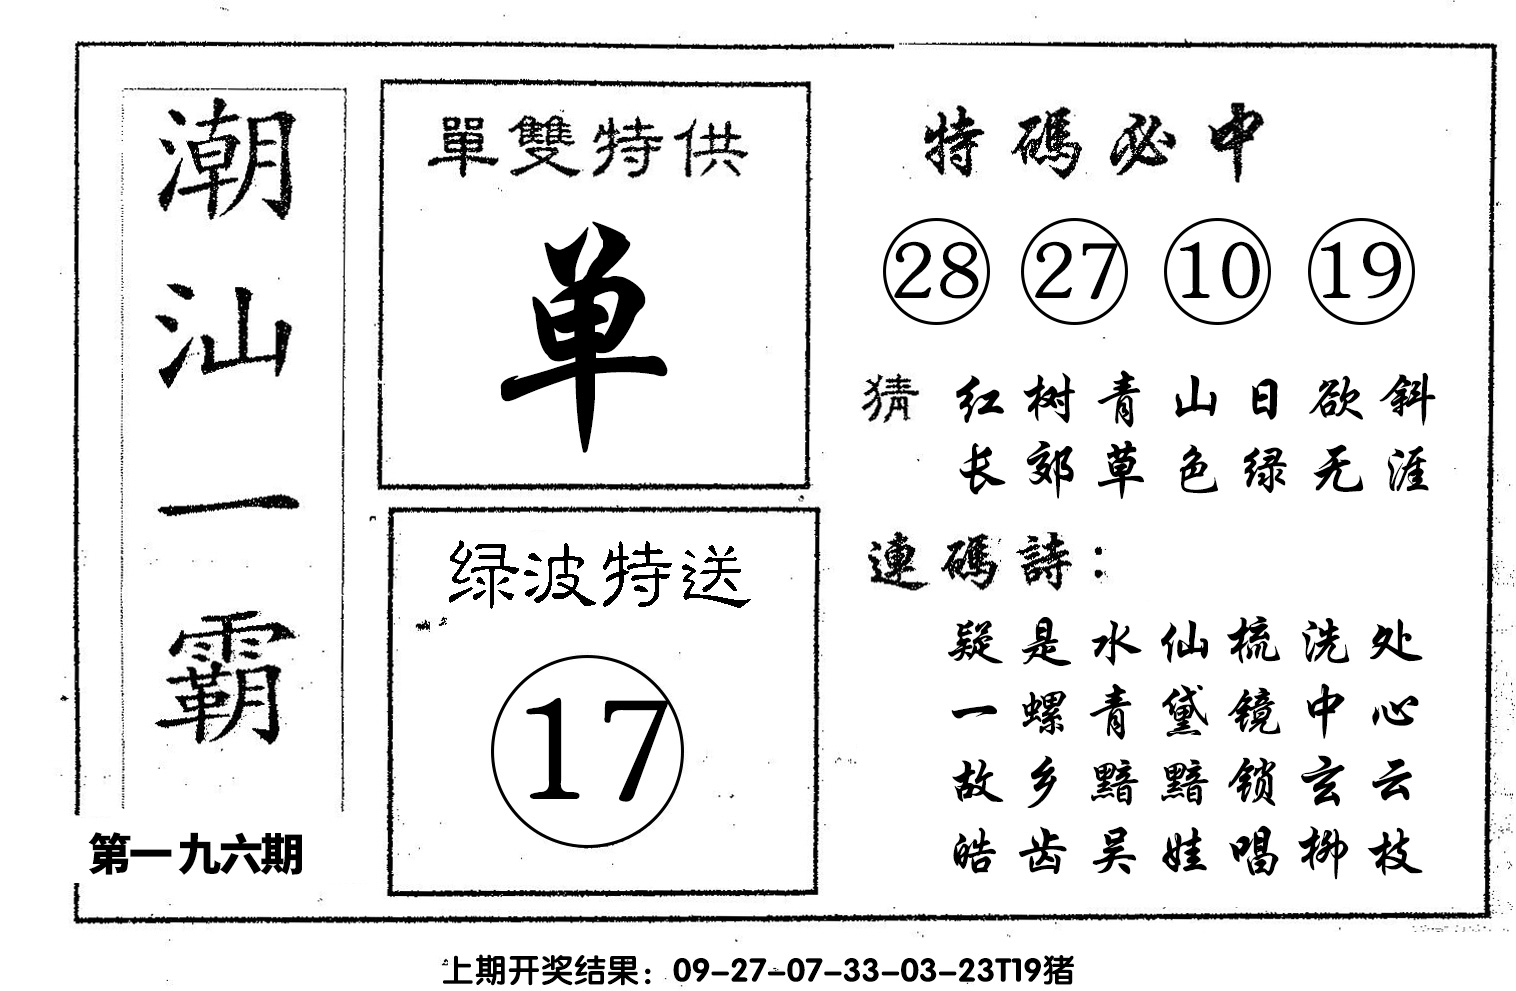 潮汕一霸
第一九六期
單雙特供
单
绿波特送
17
特碼必中
28 27 10 19
猜 红树青山日欲斜
长郊草色绿无涯
連碼詩：
疑是水仙梳洗处
一螺青黛镜中心
故乡黯黯锁玄云
皓齿吴娃唱柳枝
上期开奖结果：09-27-07-33-03-23T19猪